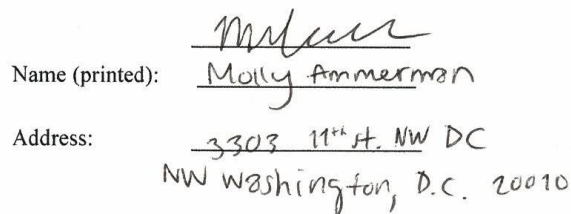 Name (printed): Molly Ammerman
Address: 3303 11th st. NW DC
NW Washington, D.C. 20010